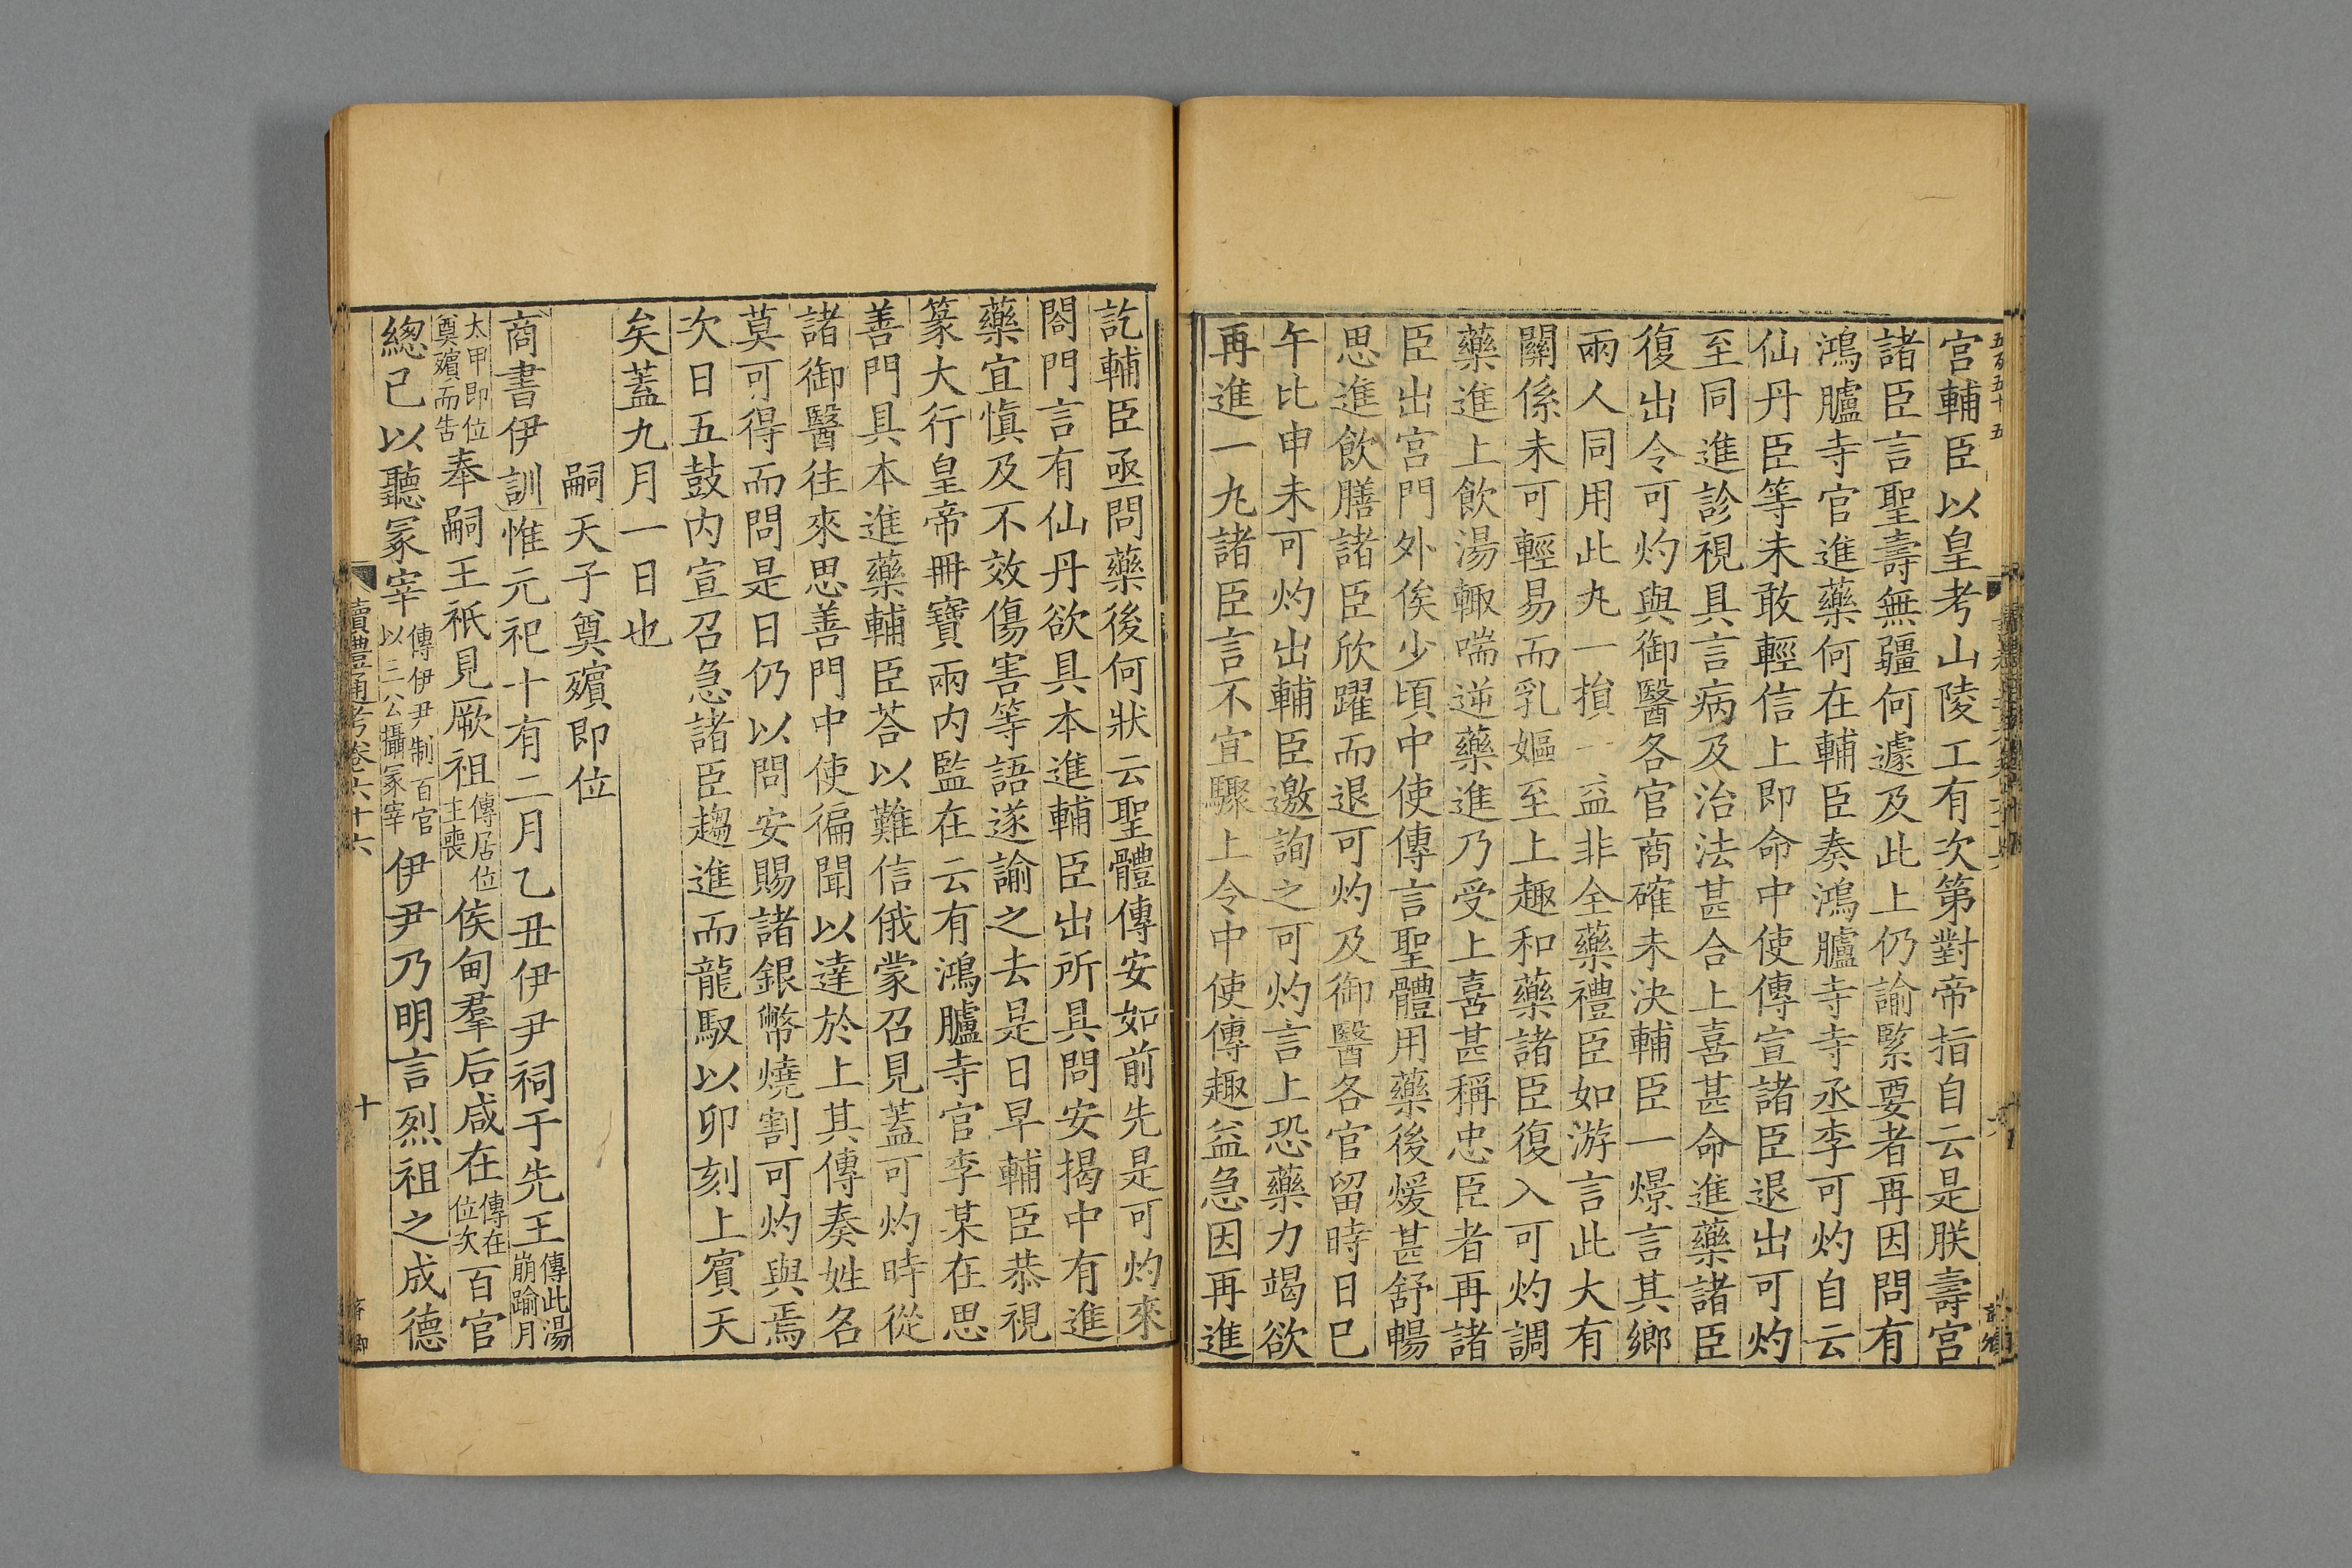 五百五十五
宮輔臣以皇考山陵工有次第對帝指自云是朕壽宮
諸臣言聖壽無疆何遽及此上仍諭緊要者再因問有
鴻臚寺官進藥何在輔臣奏鴻臚寺寺丞李可灼自云
仙丹臣等未敢輕信上即命中使傳宣諸臣退出可灼
至同進診視具言病及治法甚合上喜甚命進藥諸臣
復出令可灼與御醫各官商確未決輔臣一燝言其鄉
兩人同用此丸一損一益非全藥禮臣如游言此大有
關係未可輕易而乳嫗至上趣和藥諸臣復入可灼調
藥進上飲湯輒喘逆藥進乃受上喜甚稱忠臣者再諸
臣出宮門外俟少頃中使傳言聖體用藥後煖甚舒暢
思進飲膳諸臣欣躍而退可灼及御醫各官留時日巳
午比申未可灼出輔臣邀詢之可灼言上恐藥力竭欲
再進一丸諸臣言不宜驟上令中使傳趣益急因再進
訖輔臣亟問藥後何狀云聖體傳安如前先是可灼來
閤門言有仙丹欲具本進輔臣出所具問安揭中有進
藥宜慎及不效傷害等語遂諭之去是日早輔臣恭視
篆大行皇帝冊寶兩內監在云有鴻臚寺官李某在思
善門具本進藥輔臣荅以難信俄蒙召見蓋可灼時從
諸御醫往來思善門中使徧聞以達於上其傳奏姓名
莫可得而問是日仍以問安賜諸銀幣燒割可灼與焉
次日五鼓內宣召急諸臣趨進而龍馭以卯刻上賓天
矣蓋九月一日也
嗣天子奠殯即位
商書伊訓惟元祀十有二月乙丑伊尹祠于先王傳此湯崩踰月
太甲即位奠殯而告奉嗣王祇見厥祖傳居位主喪侯甸羣后咸在傳在位次百官
緫已以聽冢宰傳伊尹制百官以三公攝冢宰伊尹乃明言烈祖之成德
讀禮通考卷六十六
十